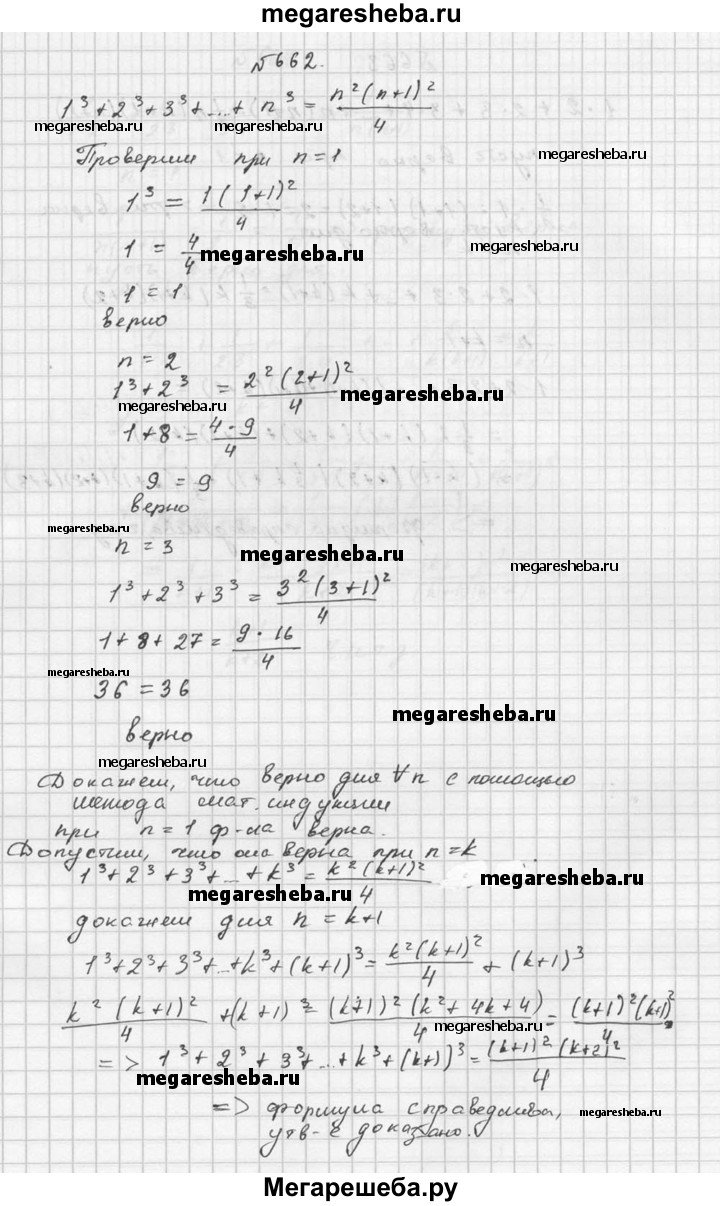 megaresheba.ru
№662.
1³+2³+3³+...+n³ = n²(n+1)²/4
megaresheba.ru megaresheba.ru megaresheba.ru
Проверим при n=1
1³ = 1(1+1)²/4
1 = 4/4
megaresheba.ru megaresheba.ru
1 = 1
верно
n = 2
1³+2³ = 2²(2+1)²/4
megaresheba.ru megaresheba.ru
1+8 = 4·9/4
9 = 9
верно
megaresheba.ru
n = 3
megaresheba.ru megaresheba.ru
1³+2³+3³ = 3²(3+1)²/4
1+8+27 = 9·16/4
megaresheba.ru
36 = 36
megaresheba.ru
верно
megaresheba.ru
Докажем, что верно для ∀n с помощью
метода мат. индукции
при n=1 ф-ла верна.
Допустим, что она верна при n=k
1³+2³+3³+...+k³ = k²(k+1)²/4
megaresheba.ru megaresheba.ru
докажем для n=k+1
1³+2³+3³+...+k³+(k+1)³ = k²(k+1)²/4 + (k+1)³
k²(k+1)²/4 + (k+1)³ = (k+1)²(k²+4k+4)/4 = (k+1)²(k+1)²/4
megaresheba.ru
=> 1³+2³+3³+...+k³+(k+1)³ = (k+1)²(k+2)²/4
megaresheba.ru
=> формула справедлива,
megaresheba.ru
утв-е доказано.
Мегарешеба.ру